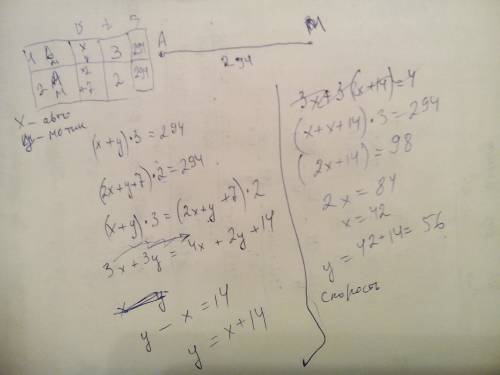 v t S
1 А М x y 3 294
2 А М 2x y+7 2 294
А М
294
x - авто
y - мотик
(x+y)·3=294
(2x+y+7)·2=294
(x+y)·3=(2x+y+7)·2
3x+3y=4x+2y+14
y-x=14
y=x+14
3x+3(x+14)=4
(x+x+14)·3=294
(2x+14)=98
2x=84
x=42
y=42+14=56
скорость